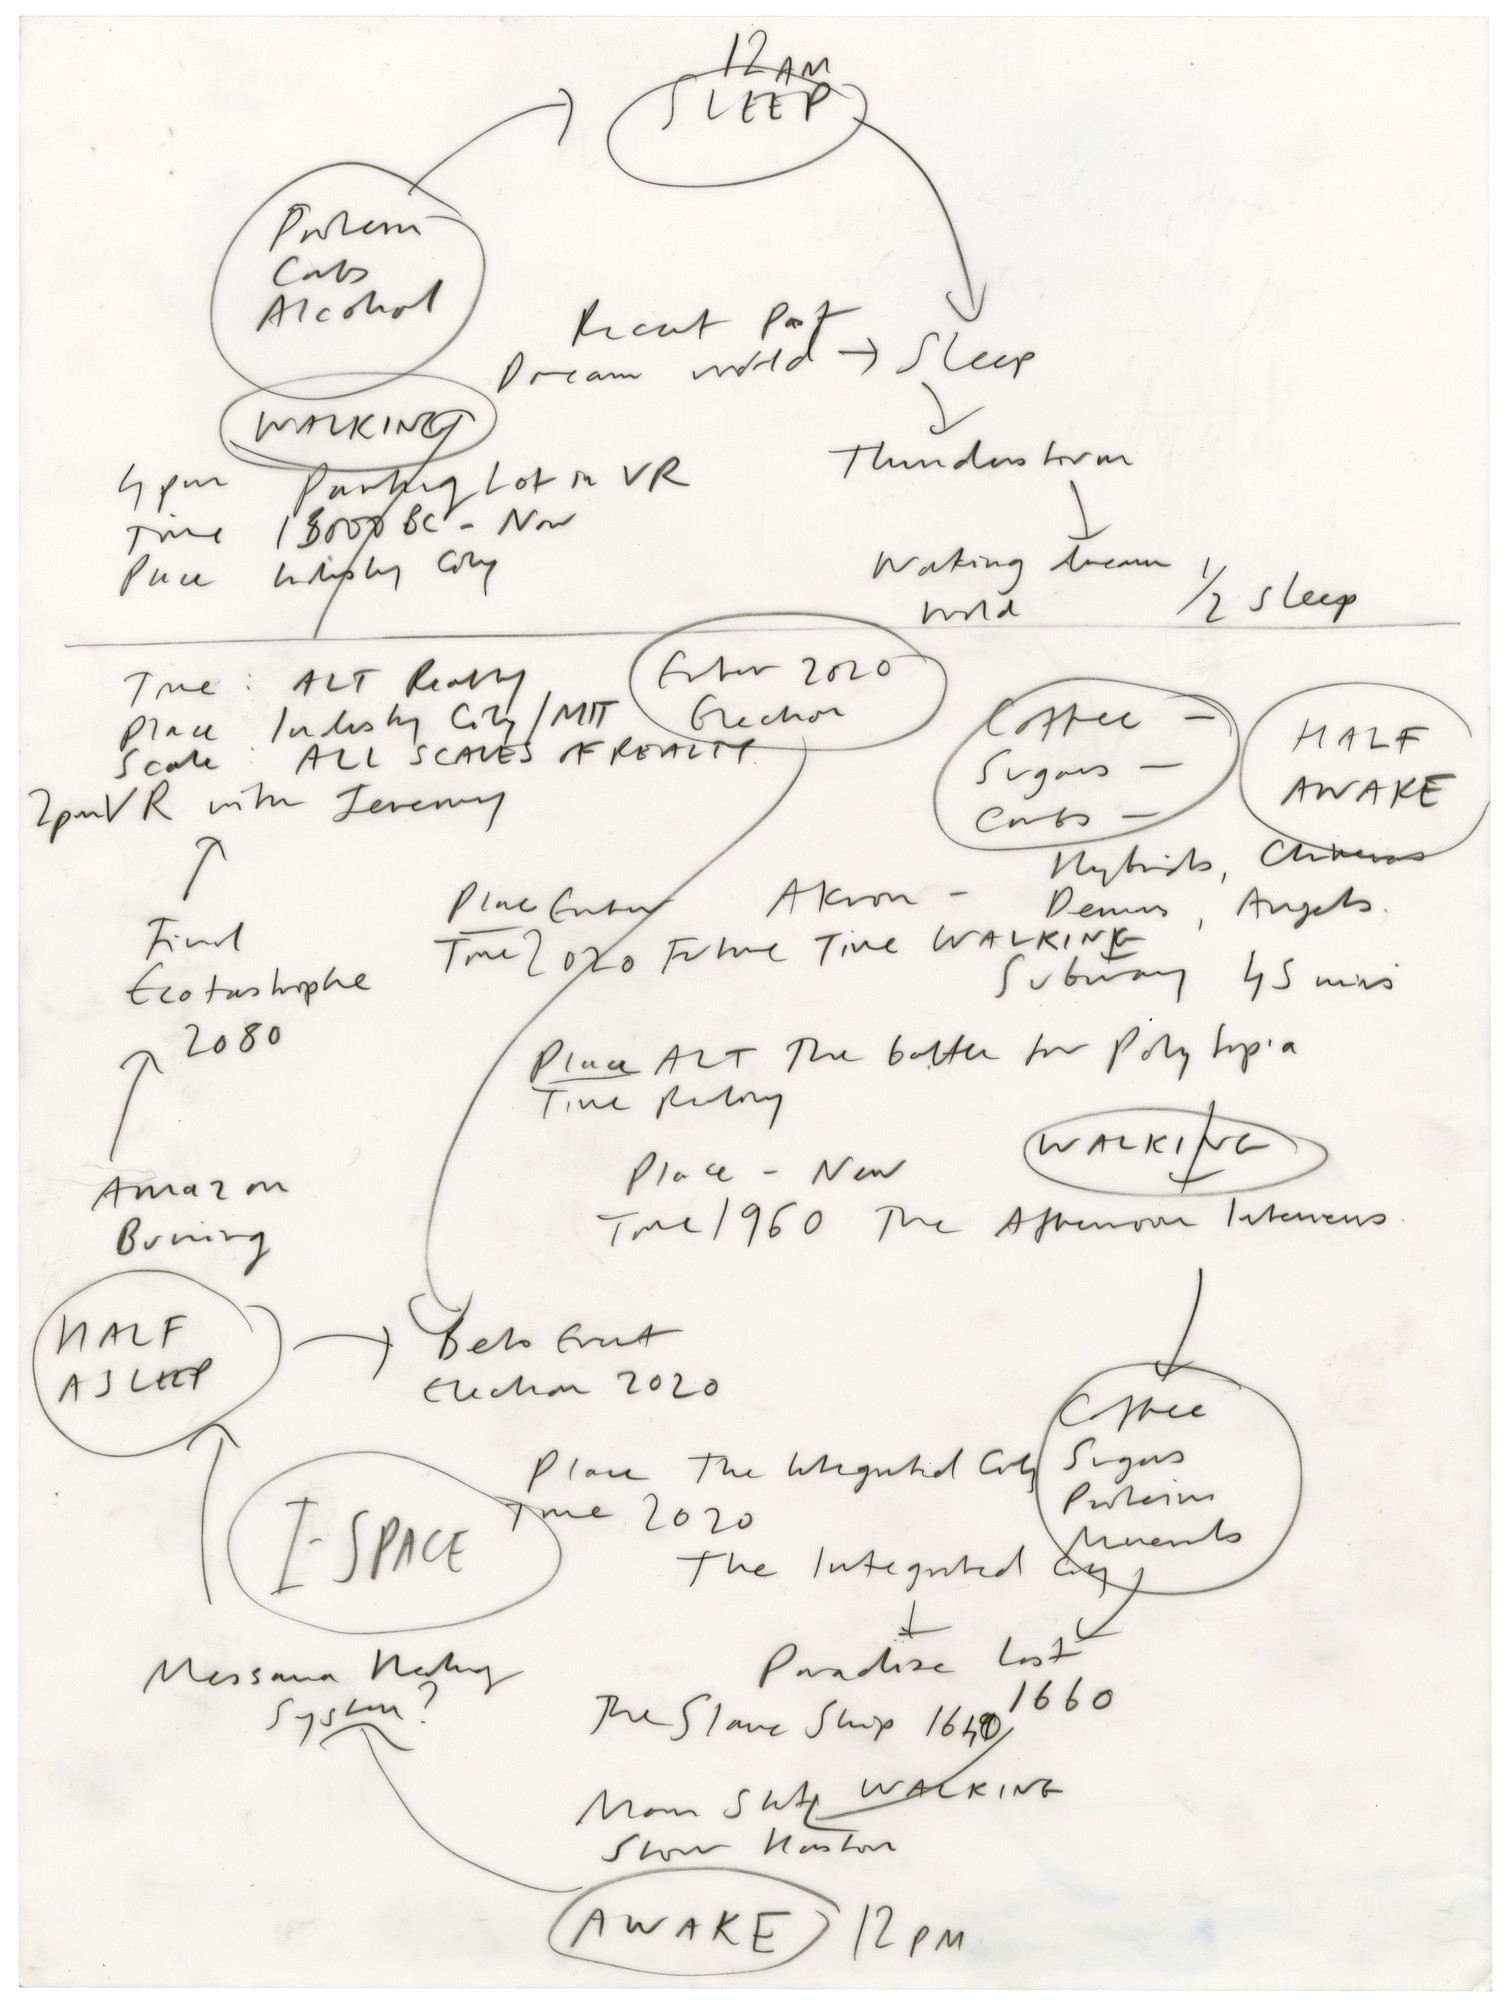 12 AM
SLEEP
Protein
Carbs
Alcohol
Recent Past
Dream world → Sleep
WALKING
Thunderstorm
4 pm Parking Lot in VR
Time 13000 BC - Now
Place Industry City
Waking dream
world
1/2 Sleep
Time : ALT Reality
Place Industry City/MIT
Scale : ALL SCALES OF REALTY
2pm VR with Jeremy
Enter 2020
Election
Coffee -
Sugars -
Carbs -
HALF
AWAKE
Hybrids, Chimeras
Akron - Demons, Angels.
Place Enter
Time 2020 Future Time WALKING
Subway 45 mins
Final
Ecotastrophe
2080
Place ALT The battle for Polytopia
Time Reality
WALKING
Place - New
Time 1960 The Afternoon Interviews
Amazon
Burning
HALF
ASLEEP
Beto Event
Election 2020
Coffee
Sugars
Proteins
Minerals
Place The Integrated City
Time 2020
The Integrated City
I-SPACE
Paradise Lost
1660
The Slave Ship 1640
Healing
System?
Mom WALKING
Show Houston
AWAKE 12 PM